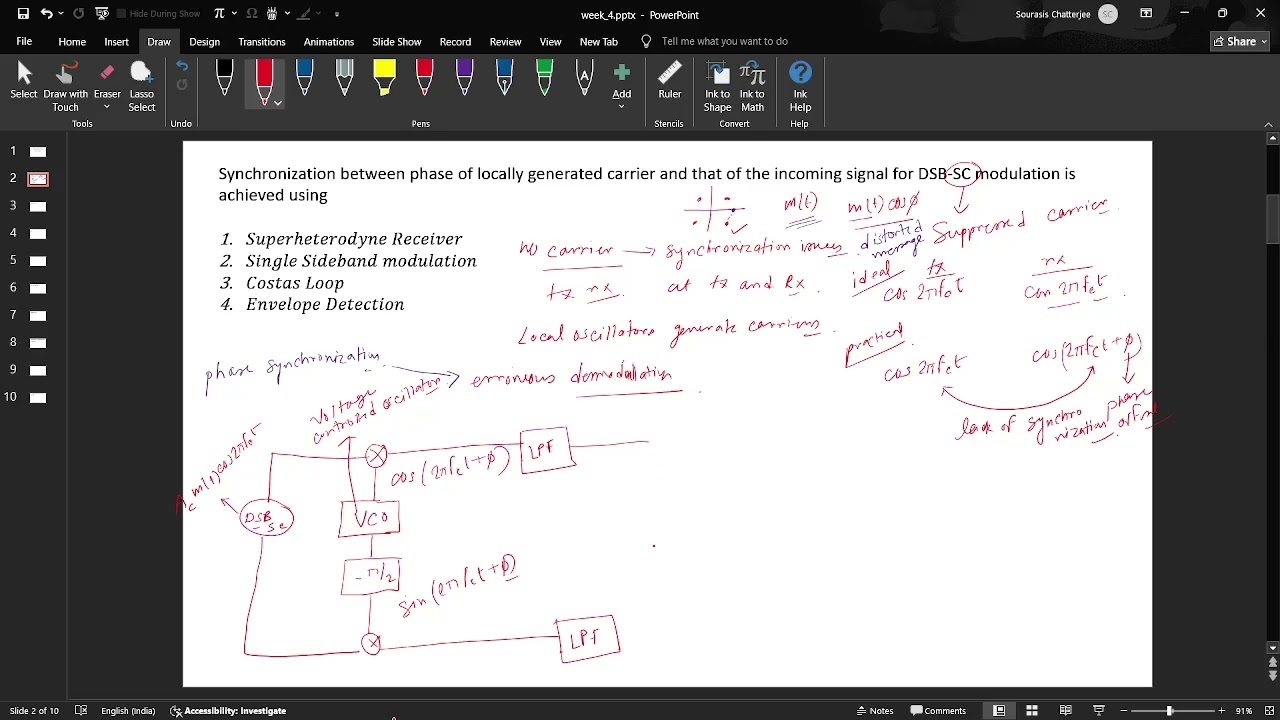 Hide During Show
week_4.pptx - PowerPoint
Sourasis Chatterjee SC
File Home Insert Draw Design Transitions Animations Slide Show Record Review View New Tab Tell me what you want to do Share
Select Draw with Touch Eraser Lasso Select Add Ruler Ink to Shape Ink to Math Ink Help
Tools Undo Pens Stencils Convert Help
1
2
3
4
5
6
7
8
9
10
Synchronization between phase of locally generated carrier and that of the incoming signal for DSB-SC modulation is
achieved using
1. Superheterodyne Receiver
2. Single Sideband modulation
3. Costas Loop
4. Envelope Detection
m(t) m(t) cosφ
distorted message
Suppressed carrier
no carrier → synchronization issues.
tx rx at tx and Rx.
ideal
tx
cos 2πfct
rx
cos 2πfct
Local oscillators generate carriers.
practical
cos 2πfct
cos(2πfct+φ)
lack of synchronization
phase offset
phase synchronization
erroneous demodulation
Voltage controlled oscillator
Ac m(t) cos2πfct
DSB-SC
X
cos(2πfct+φ)
LPF
VCO
-π/2
sin(2πfct+φ)
X
LPF
Slide 2 of 10 English (India) Accessibility: Investigate Notes Comments 91%